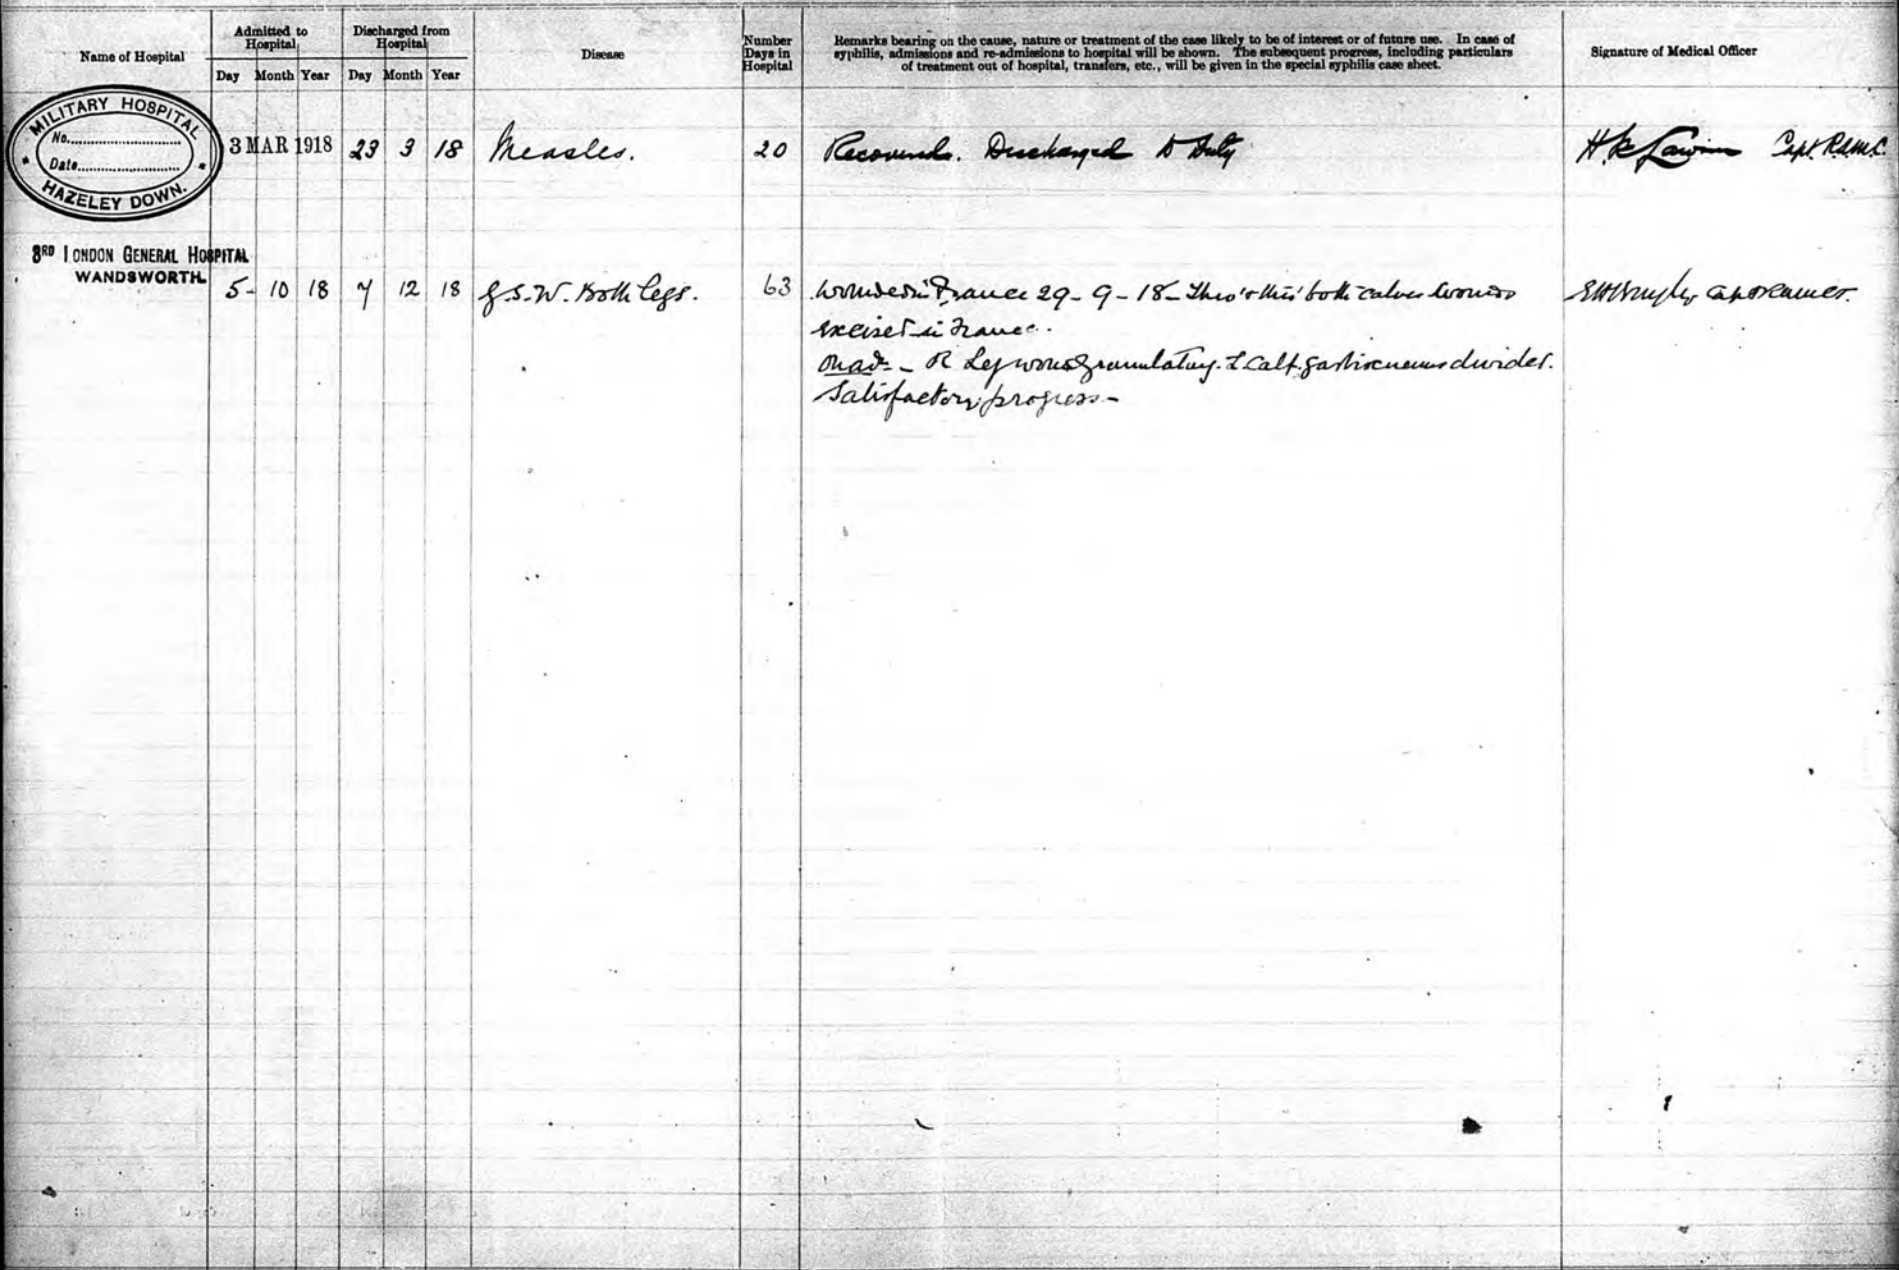 Name of Hospital
Admitted to
Hospital
Day Month Year
Discharged from
Hospital
Day Month Year
Disease
Number
Days in
Hospital
Remarks bearing on the cause, nature or treatment of the case likely to be of interest or of future use. In case of
syphilis, admissions and re-admissions to hospital will be shown. The subsequent progress, including particulars
of treatment out of hospital, transfers, etc., will be given in the special syphilis case sheet.
Signature of Medical Officer
MILITARY HOSPITAL
No.
Date
HAZELEY DOWN.
3 MAR 1918 23 3 18 Measles. 20 Recovered. Discharged to Duty Capt. R.A.M.C.
3RD LONDON GENERAL HOSPITAL
WANDSWORTH.
5- 10 18 7 12 18 G.S.W. Both legs. 63 Wounded in France 29-9-18- Thro' & thro' both calves wounds
excised in France.
R Leg wound granulating. L calf. gastrocnemius divided.
Satisfactory progress-